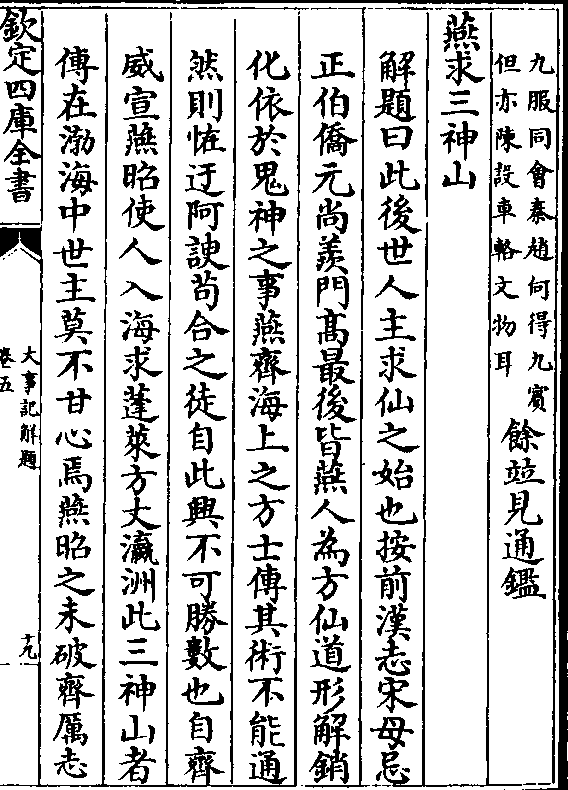 九服同會秦趙何得九賓
但亦陳設車輅文物耳
餘竝見通鑑
燕求三神山
解題曰此後世人主求仙之始也按前漢志宋毋忌
正伯僑元尚羨門高最後皆燕人為方仙道形解銷
化依於鬼神之事燕齊海上之方士傳其術不能通
然則恠迂阿諛茍合之徒自此興不可勝數也自齊
威宣燕昭使人入海求蓬萊方丈瀛洲此三神山者
傳在渤海中世主莫不甘心焉燕昭之未破齊厲志
欽定四庫全書
大事記解題
卷五
十九